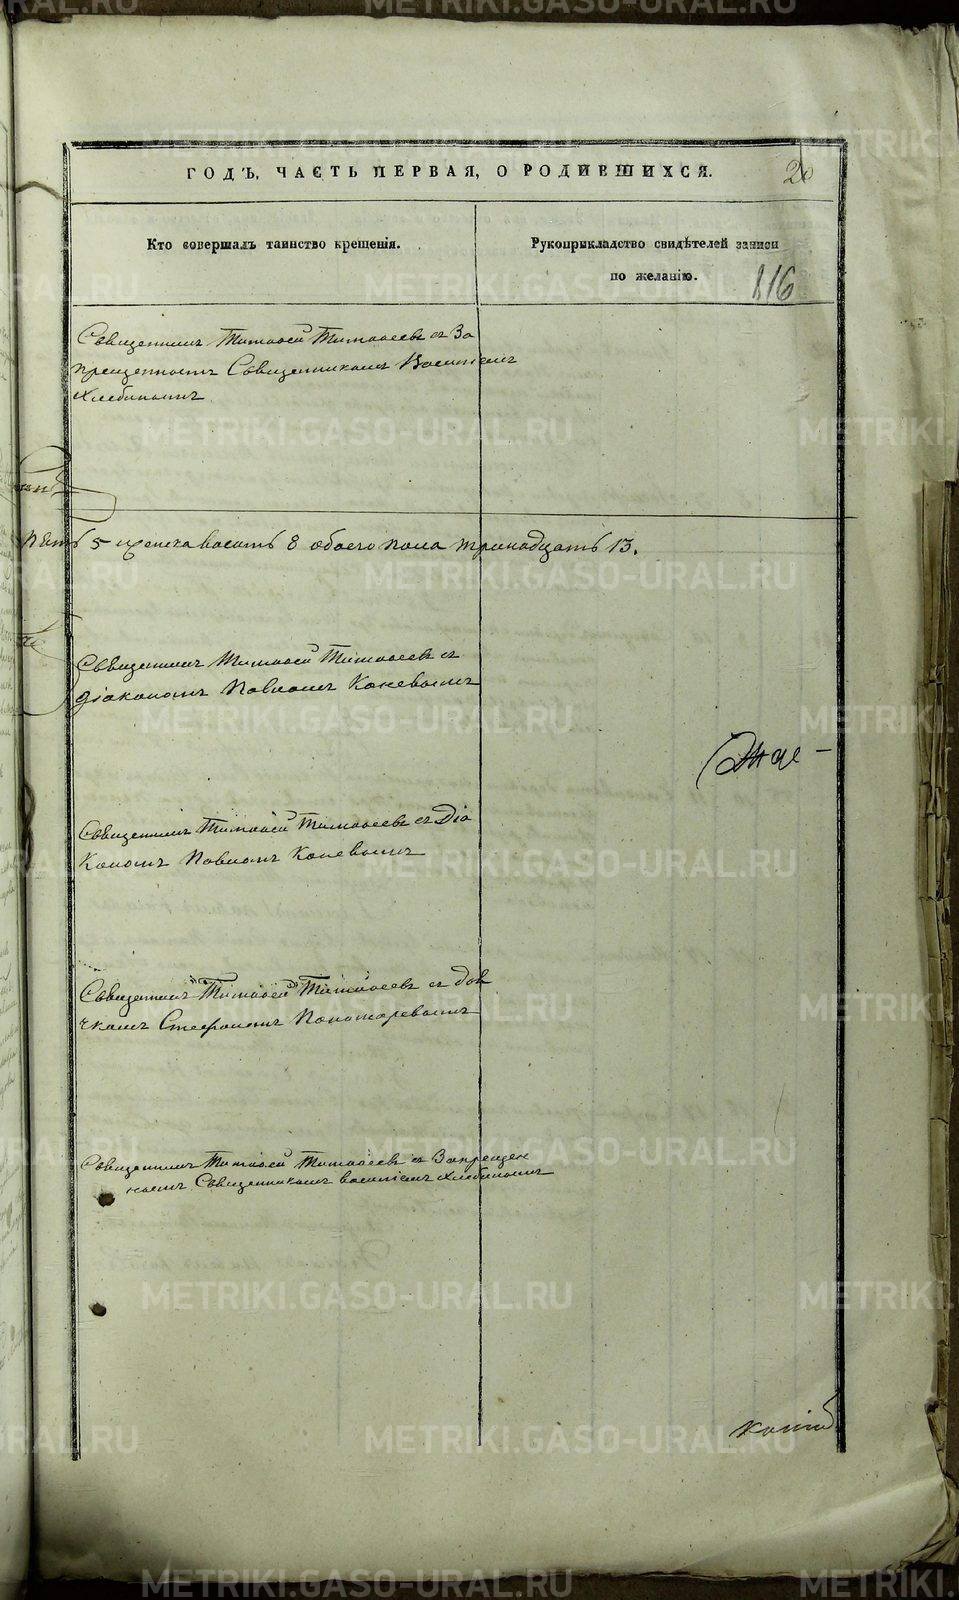 ГОДЪ, ЧАСТЬ ПЕРВАЯ, О РОДИВШИХСЯ.
20
Кто совершалъ таинство крещенія.
Рукоприкладство свидѣтелей записи
по желанію.
116
Священникъ Тимофей Тимофеевъ съ За
прещеннымъ Священникомъ Василіемъ
Хлебинымъ
5 женска восемь 8 обоего пола тринадцать 13.
Священникъ Тимофей Тимофеевъ съ
діакономъ Павломъ Коневымъ
Священникъ Тимофей Тимофеевъ съ Діа
кономъ Павломъ Коневымъ
Священникъ Тимофей Тимофеевъ съ Дья
чкомъ Стефаномъ Пономаревымъ
Священникъ Тимофей Тимофеевъ съ Запрещен
нымъ Священникомъ Василіемъ Хлебинымъ
METRIKI.GASO-URAL.RU